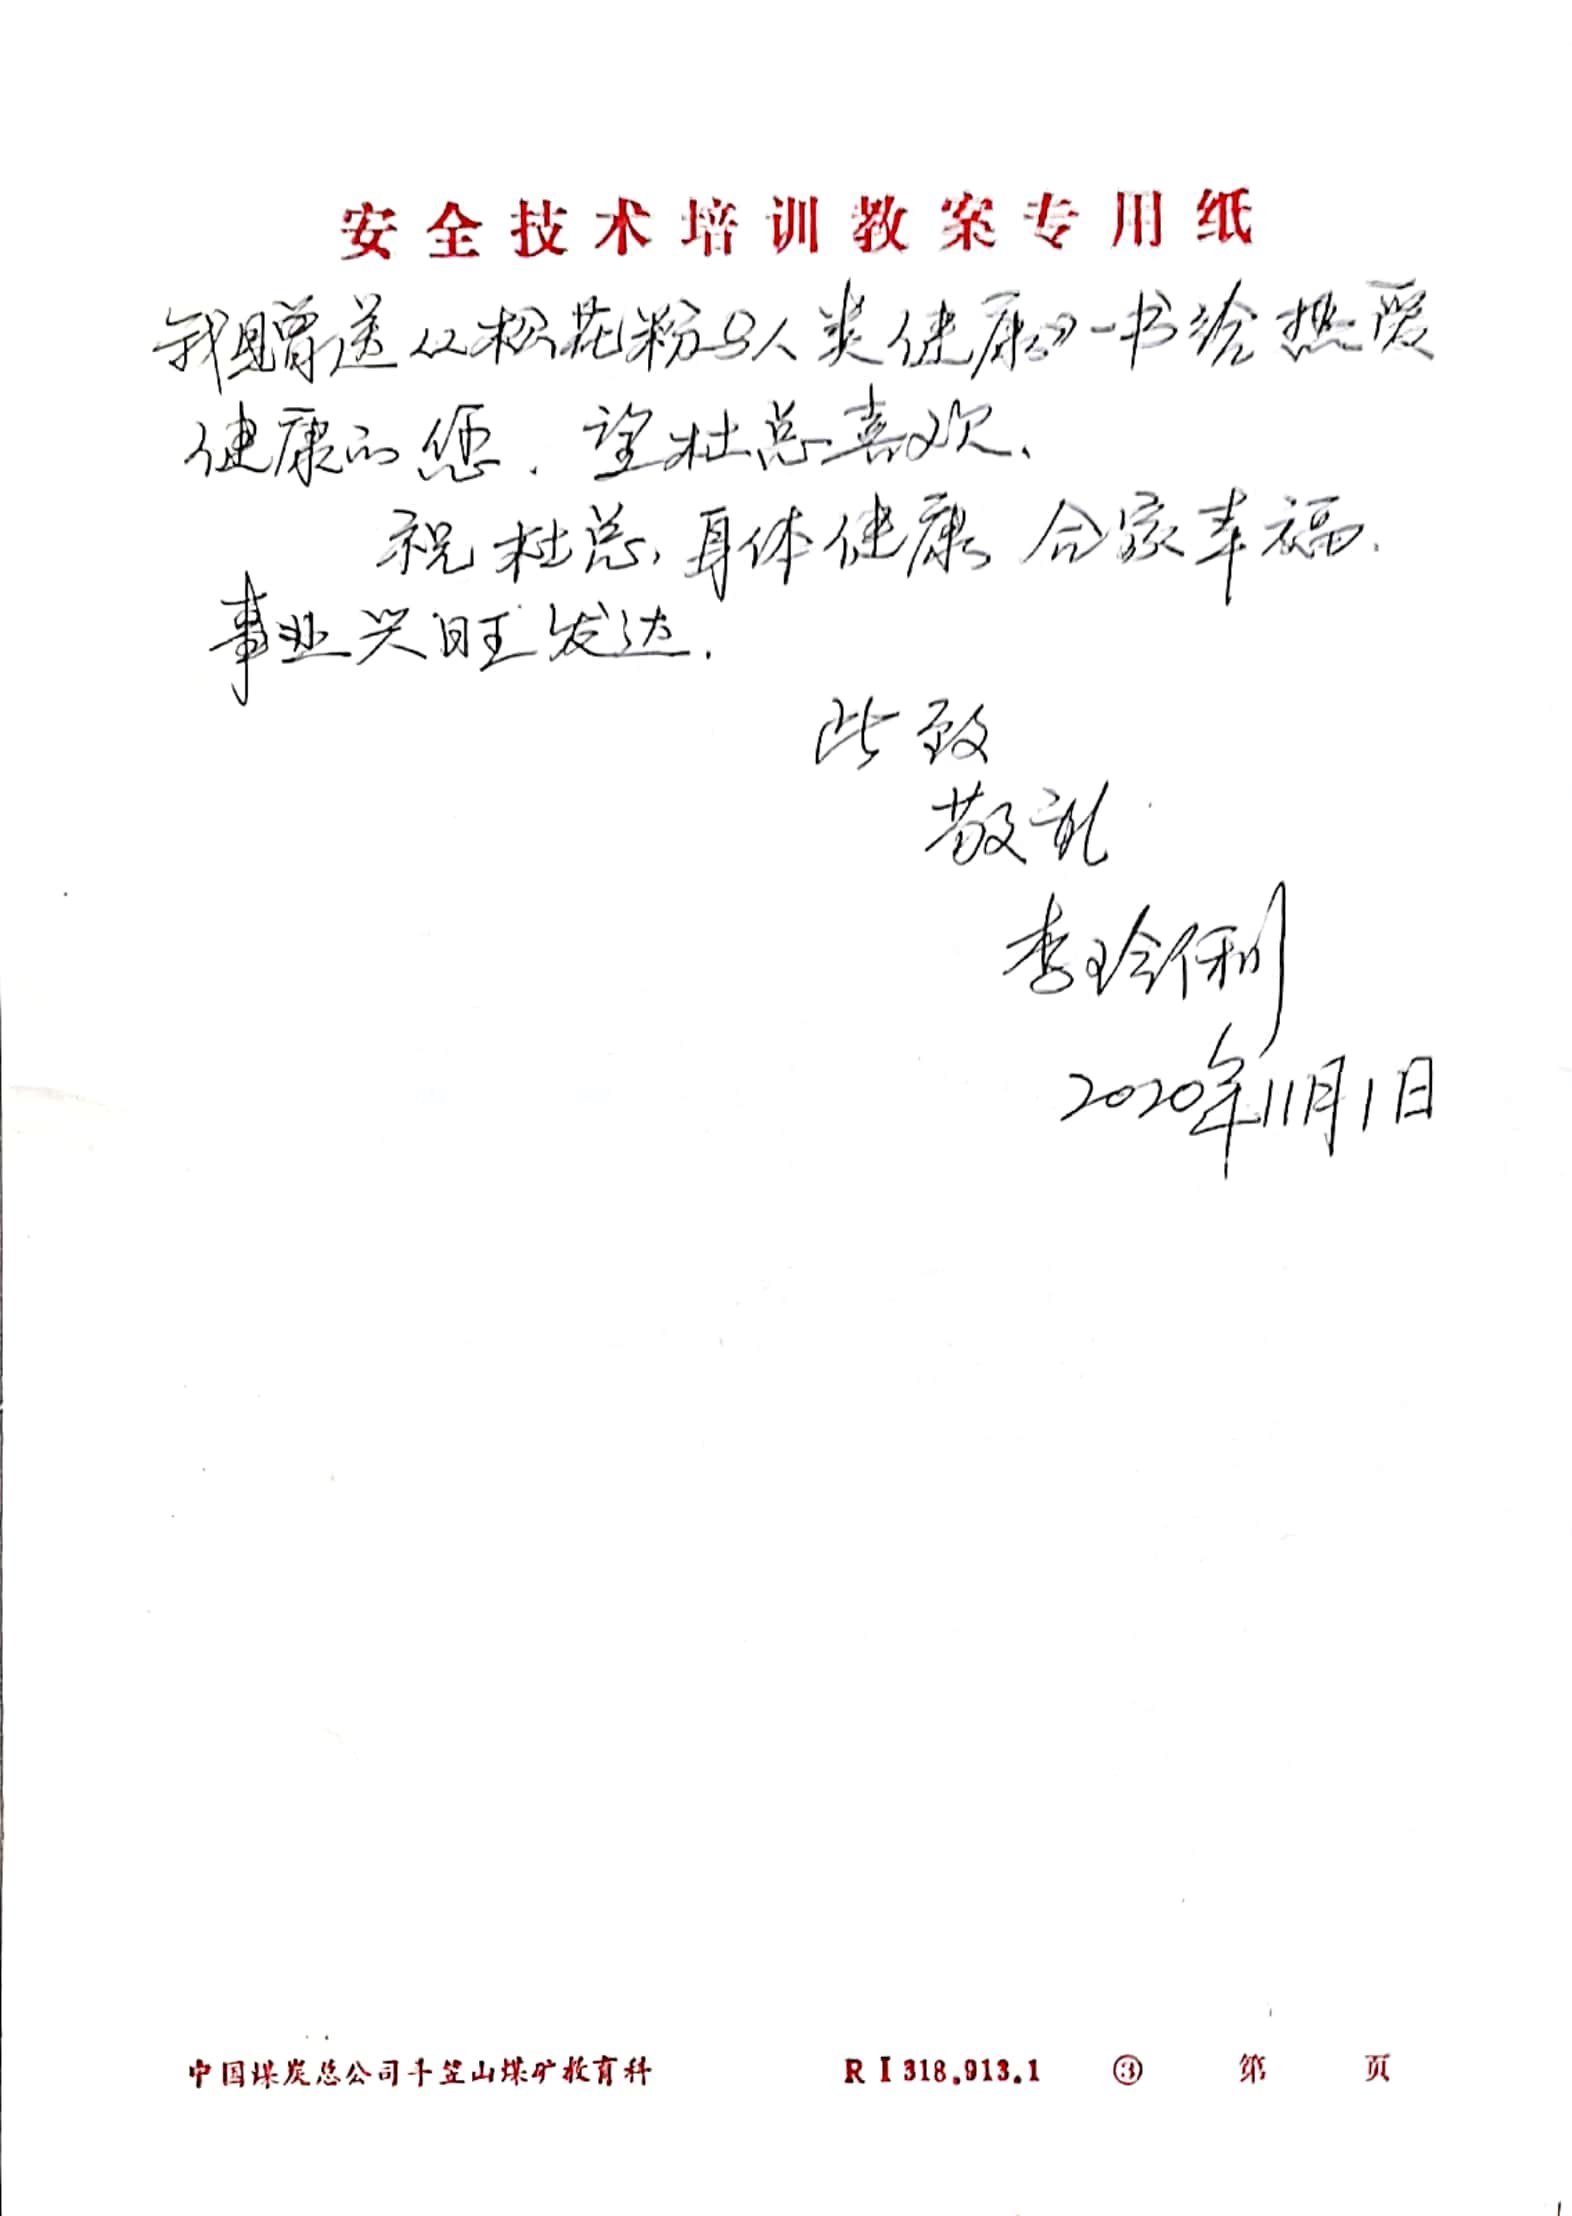 安全技术培训教案专用纸
我赠送《松花粉与人类健康》一书给热爱
健康的您.望杜总喜欢.
祝杜总,身体健康 合家幸福.
事业兴旺发达.
此致
敬礼
李玲俐
2020年11月1日
中国煤炭总公司斗笠山煤矿教育科 RI318.913.1 ③ 第 页